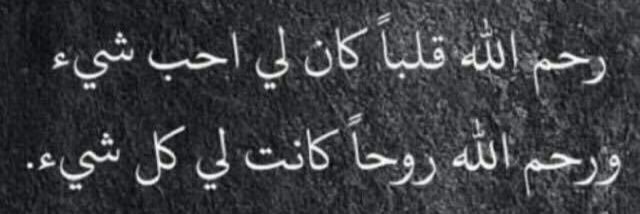 رحم الله قلباً كان لي احب شيء
ورحم الله روحاً كانت لي كل شيء.